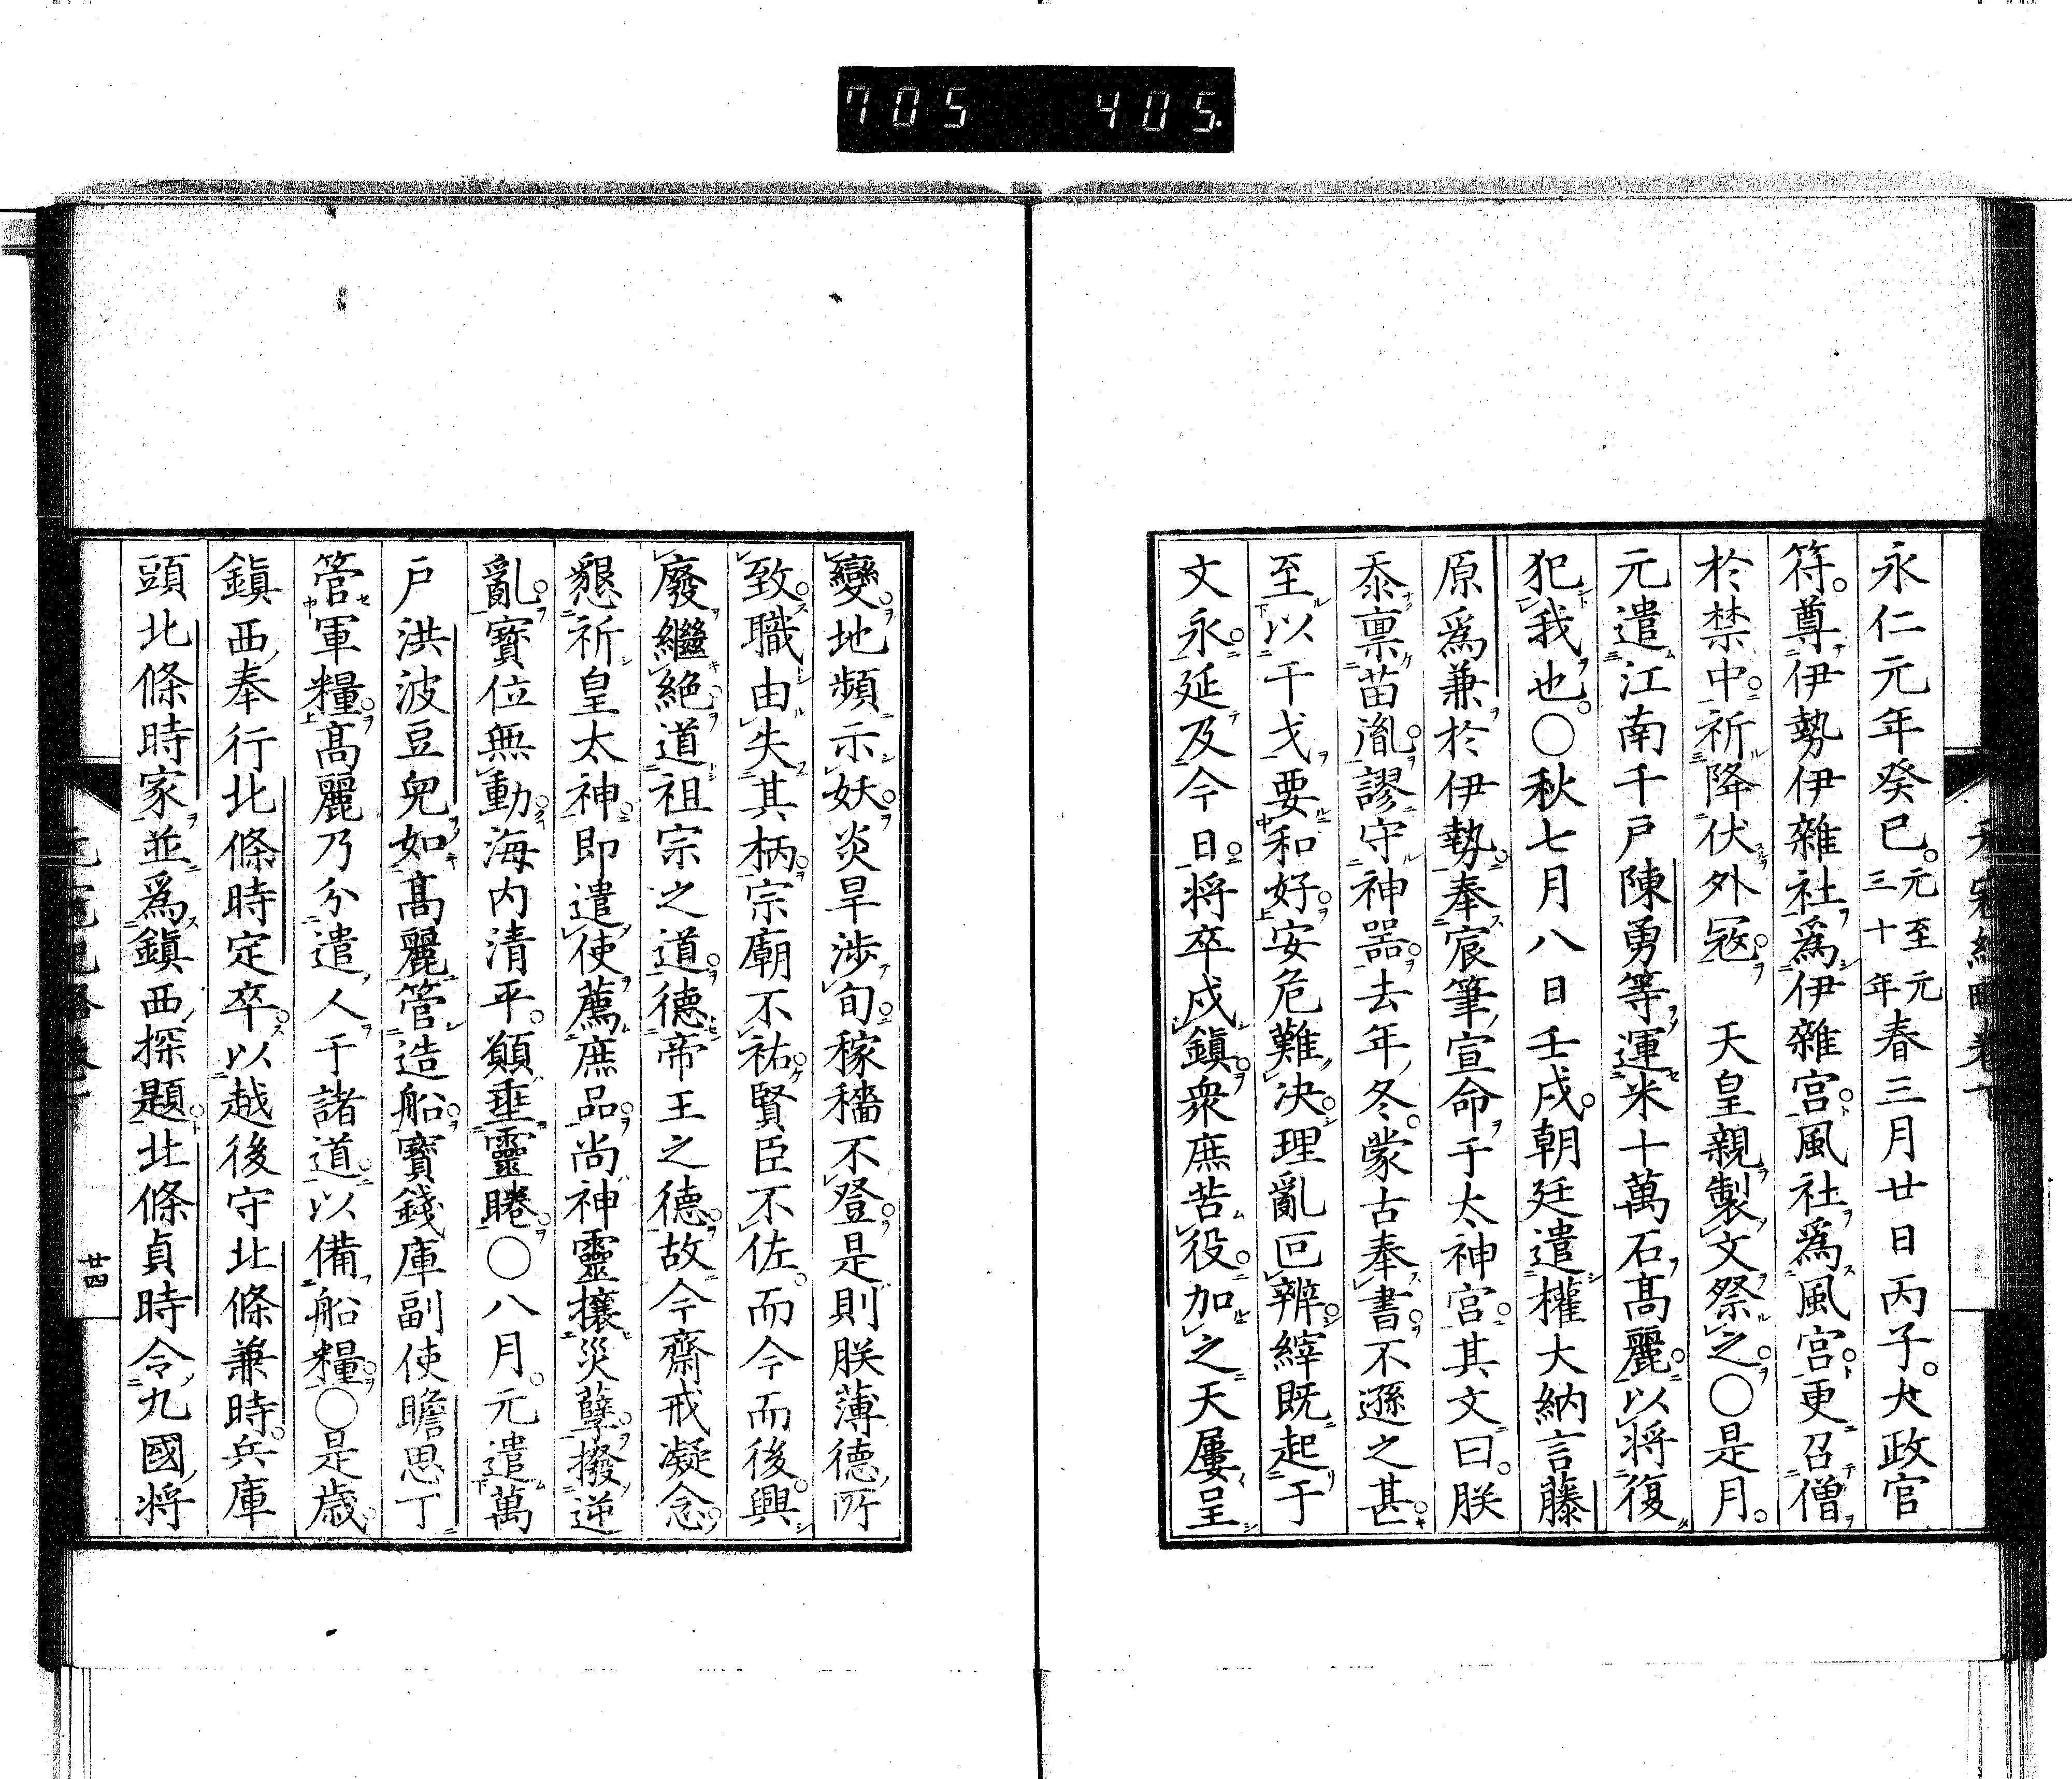 705 405.
永仁元年癸巳元至元三十年春三月廿日丙子大政官
符尊伊勢伊雜社爲伊雜宮風社爲風宮更召僧
於禁中祈降伏外冦　天皇親製文祭之○是月
元遣江南千戸陳勇等運米十萬石髙麗以将復
犯我也○秋七月八日壬戌朝廷遣權大納言藤
原爲兼於伊勢奉宸筆宣命于太神宮其文曰朕
忝稟苗胤謬守神器去年冬蒙古奉書不遜之甚
至以干戈要和好安危難決理亂叵辨繹既起于
文永延及今日将卒戍鎭衆庶苦役加之天屢呈
變地頻示妖炎旱渉旬稼穡不登是則朕薄德所
致職由失其柄宗廟不祐賢臣不佐而今而後興
廢繼絶道祖宗之道德帝王之德故今齋戒凝念
懇祈皇太神即遣使薦庶品尚神靈攘災孽撥逆
亂寶位無動海内清平顚垂靈睠○八月元遣萬
戸洪波豆兒如髙麗管造船寶錢庫副使瞻思丁
管軍糧髙麗乃分遣人于諸道以備船糧○是歳
鎭西奉行北條時定卒以越後守北條兼時兵庫
頭北條時家並爲鎭西探題北條貞時令九國将
廿四